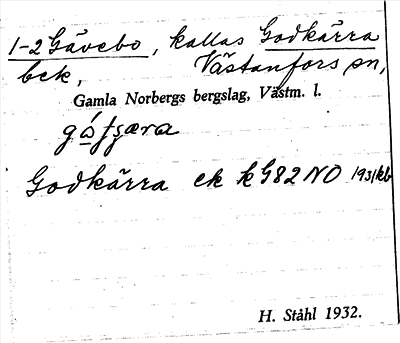 1-2 Gävebo, kallas Godkärra
bek, Västanfors sn,
Gamla Norbergs bergslag, Västm. l.
Godkärra ek k G82NO 1931 kb
H. Ståhl 1932.